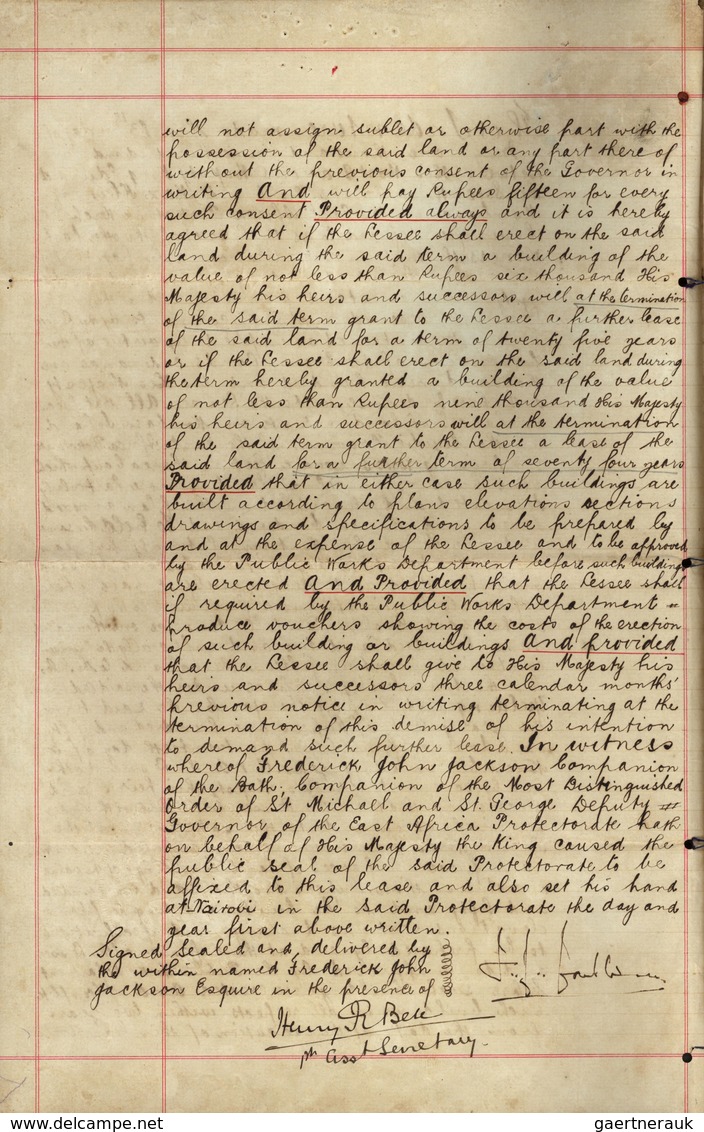 will not assign sublet or otherwise part with the
possession of the said land or any part there of
without the previous consent of the Governor in
writing And will pay Rupees fifteen for every
such consent Provided always and it is hereby
agreed that if the Lessee shall erect on the said
land during the said term a building of the
value of not less than Rupees six thousand His
Majesty his heirs and successors will at the termination
of the said term grant to the Lessee a further lease
of the said land for a term of twenty five years
or if the Lessee shall erect on the said land during
the term hereby granted a building of the value
of not less than Rupees nine thousand His Majesty
his heirs and successors will at the termination
of the said term grant to the Lessee a lease of the
said land for a further term of seventy four years
Provided that in either case such buildings are
built according to plans elevations sections
drawings and specifications to be prepared by
and at the expense of the Lessee and to be approved
by the Public Works Department before such buildings
are erected And Provided that the Lessee shall
if required by the Public Works Department =
produce vouchers showing the costs of the erection
of such building or buildings And provided
that the Lessee shall give to His Majesty his
heirs and successors three calendar months'
previous notice in writing terminating at the
termination of this demise of his intention
to demand such further lease. In witness
whereof Frederick John Jackson Companion
of the Bath, Companion of the Most Distinguished
Order of St Michael and St. George Deputy =
Governor of the East Africa Protectorate hath
on behalf of His Majesty the King caused the
public seal of the said Protectorate to be
affixed to this lease and also set his hand
at Nairobi in the said Protectorate the day and
year first above written.
Signed Sealed and, delivered by
the within named Frederick John
Jackson Esquire in the presence of
Henry R
Asst Secretary.
gaertnerauk